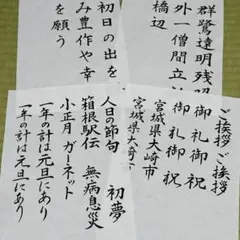 群鷺遠明残
外一僧間立
橋辺
初日の出を
み豊作や幸
を願う
ご挨拶ご挨拶
御礼御祝
御礼御祝
宮城県大崎市
宮城県大崎市
人日の節句 初夢
箱根駅伝 無病息災
小正月 ガーネット
一年の計は元旦にあり
一年の計は元旦にあり